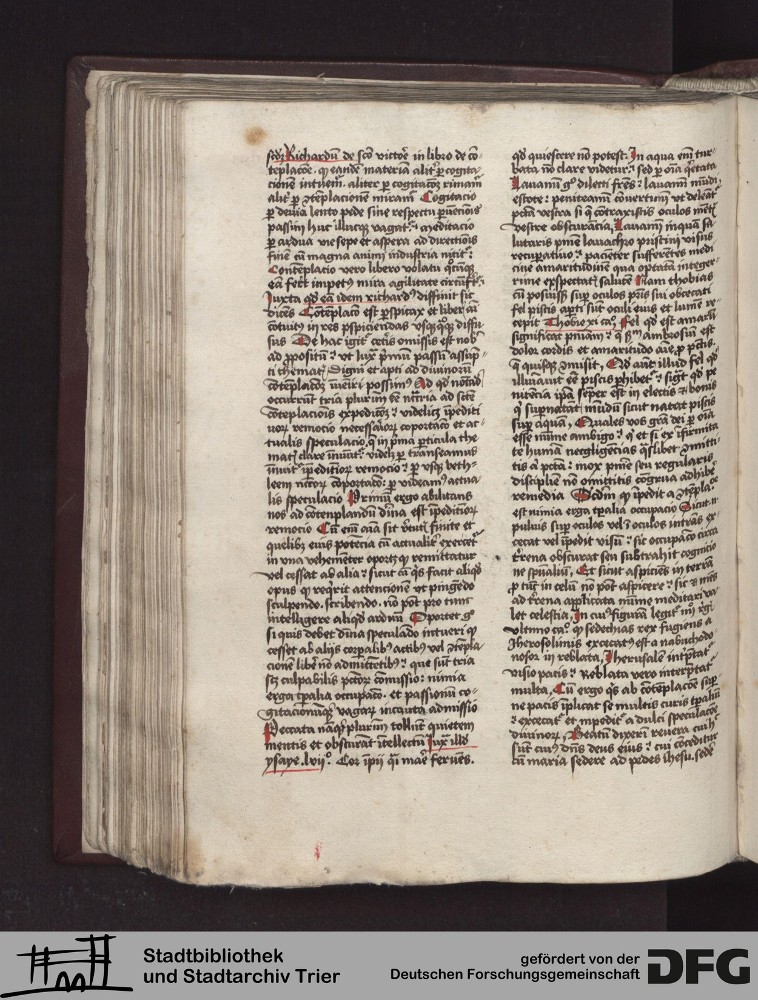 scdm Richardū de scō victoꝛe in libro de cō
teplacōe. ꝙ eandē materiā alit᷑ ꝑ cogita
cionē intuemꝛ. aliter ꝑ cogitacōꝫ rimam᷑
alit᷑ ꝑ ꝯtēplacionē miram᷑ Cogitacio
ꝑ deuia lento pede sine respectu ꝑuēcionis
passim huc illucqꝫ vagat᷑ meditacio
ꝑ ardua vie sepe et aspera ad directiois
finē cū magna animi industria nitit᷑
Contēplacio vero libero volatu
eā fert impetꝰ mira agilitate circūfert᷑
Juxta qd eā idem richardꝰ diffinit sic
dicēs Cōtēplacō est ꝑspicax et liber ai
cōtuitꝰ in res ꝑspiciendas vsqꝫqꝫ diffu
sus De hac igit᷑ cetis omissis est nob
ad ꝓpositū vt iux pꝛimū passū assūp
ti thematꝭ digni et apti ad diuinoꝝ
cōtēplacōꝫ īueiri possimꝰ Ad qd notād
occurrūt tria plurimū necessaria ad
cōtēplacionis videlicꝫ īpediti
uoꝝ remocio necessarioꝝ coportacō et ac
tualis speculacio in pꝛima ꝑticula the
matꝭ clare ꝑ transeamus
īpeditioꝝ remocio ꝑ vsqꝫ beth
leem coportacō ꝑ videamꝰ actua
lis speculacio Primū ergo abilitans
nos ad cōtenplandū diuina est īpeditioꝝ
remocio Cū em̄ aīa sit finite et
quelibꝫ euis potēcia cū actualit᷑ exercet᷑
in vna vehemēter oportꝫ ꝙ remittatur
vel cesset ab alia sicut cū qͥs facit aliqd
opus ꝙ reqͥrit attencionē vt pingēdo
sculpendo. scribendo. nō pōt pro tunc
intelligere aliqd arduū Oportet gͦ
si quis debet diuīa speculādo intueri ꝙ
cesset ab aliis corpalibꝰ actibꝰ vel ꝯtēpla
cionē liberā nō admittētibꝰ que sūt tria
scꝫ culpabilis pctoꝝ comissio nimia
erga tꝑalia occupacō. et passionū co
gitacionūqꝫ vagaꝝ incauta admissio
Peccata nāqꝫ plurimū tollūt quietem
mentis et obscurāt intellectū Jux illd
ysaye. lviiͦ. Cor īpii qͥ maē feruēs.
qd quiescere nō potest. In aqua em̄ tur
bata nō clare videtur sed ꝑ oīa quietata
Lauamī gͦ dilecti frēs lauamī mūdi
estote penitenciā conuertimī vt deleāt᷑
pctā vestra si q̄ cōtraxistis oculos mētꝭ
vestre obscurācia. Lauamī inquā sa
lutaris pnīe lauachro pristini visus
recuꝑatiuo pacienter sufferētes medi
cine amaritudinē qua optatā integer
rime exspectatꝭ salutē Nam thobias
cū posuissꝫ suꝑ oculos pris sui obcecati
fel piscis aꝑti sūt oculi eius et lumē re
cepit Thobie xi caͦ. Fel qd est amarū
significat pniām q̄ ambrosiū est
dolor cordis et amaritudo aīe ꝓ pctis
q̄ quisqꝫ ꝯmisit. Qd aūt illud fel qd
illuīauit eē piscis ꝓhibet᷑ sigt᷑ qd pe
nitēcia ipā sēper est in electis et bonis
q̄ supnatāt mūdū sicut natat piscis
suꝑ aquā. Quales vos grā dei ꝑ oīa
esse mīme ambigo et si ex īfirmita
te humā negligēcias qͣslibet ꝯmitti
tis et pctā mox pnīe seu regularis
disciplīe nō omittitis cōgrua adhibē
remedia Scdm ꝙ īpedit a ꝯtēplacōe
est nimia erga tꝑalia occupacio Sicut
puluis suꝑ oculos vel ī oculos intrās ex
cecat vel īpedit visū sic occupacio circa
trēna obscurat seu subtrahit cognicio
nē spūaliū. Et sicut aspiciēs in terrā
ꝓ tūc in celū nō pōt aspicere sic et mēs
ad trēna applicata mīme meditari va
let celestia. In cuiꝰ figurā legit᷑ iiii rgū
vltimo caͦ. ꝙ sedechias rex fugiens a
Jherosolimis excecatꝰ est a nabuchodo
nosor in reblata. Jherusalē intp̄tat᷑
visio pacis Reblata vero interp̄tat᷑
multa. Cū ergo qͥs ab cōtēplacōe suꝑ
ne pacis īplicat se multis curis tꝑaliū
excecat᷑ et īpedit᷑ a dulci speculacōe
diuinoꝝ. Beatū dixeri reuera
sūt cuiꝰ dns deus eius cui cōceditur
cū maria sedere ad pedes ihesu. sede
Stadtbibliothek
und Stadtarchiv Trier
gefördert von der
Deutschen Forschungsgemeinschaft
DFG